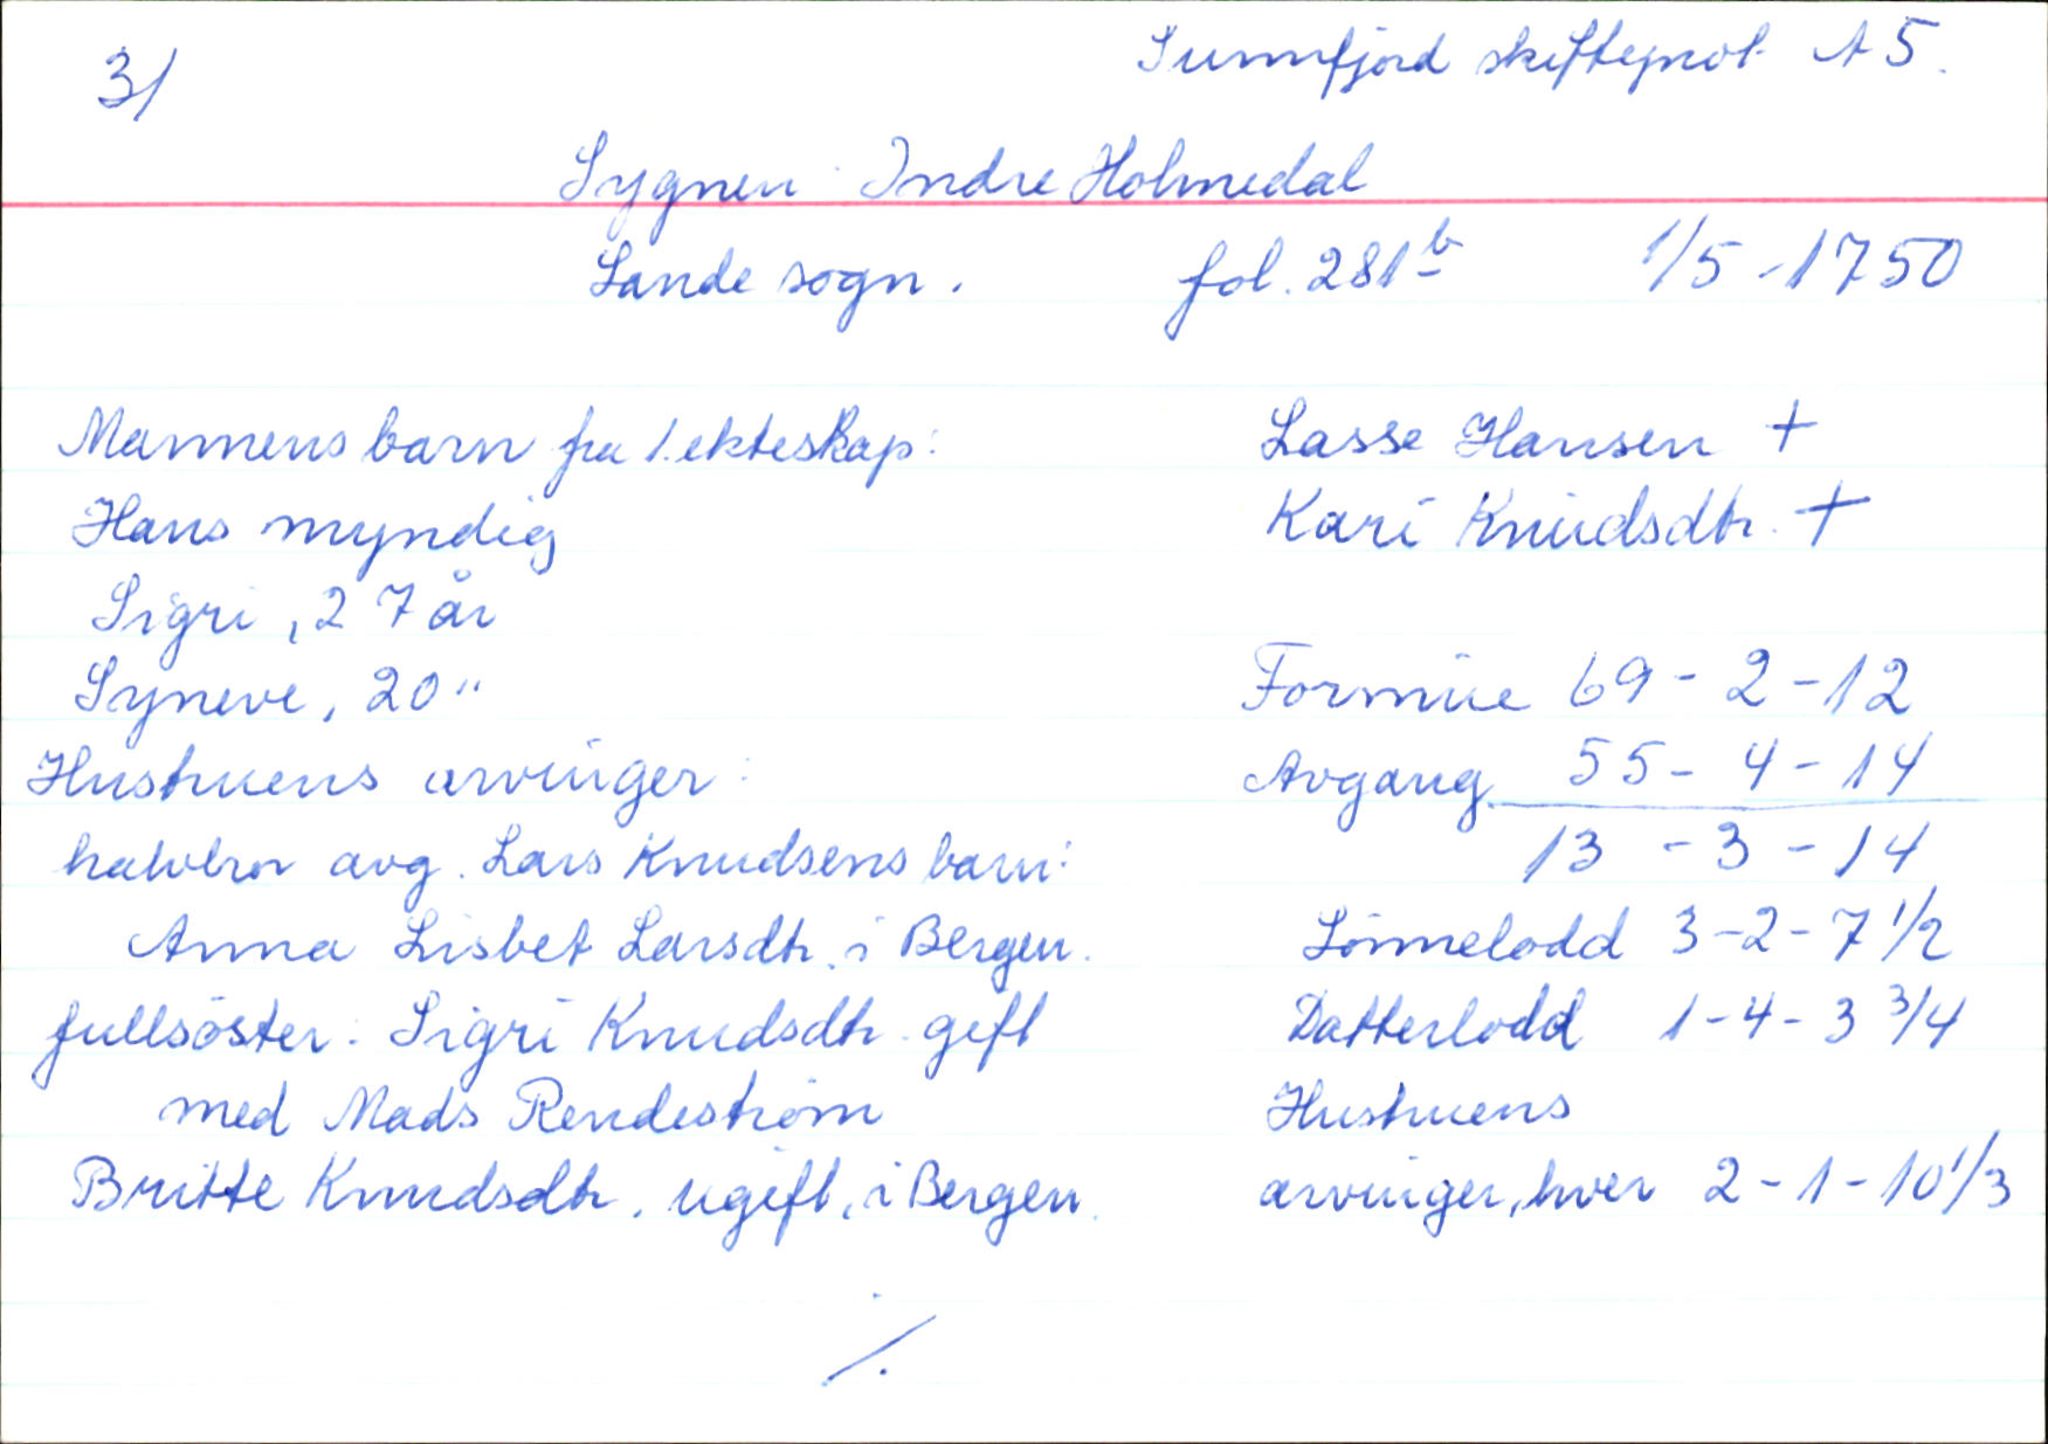 3/
Sunnfjord skifteprot A 5.
Sygnen Indre Holmedal
Sande sogn. fol. 281b 1/5-1750
Mannens barn fra 1. ekteskap:
Hans myndig
Sigri, 27 år
Syneve, 20 "
Hustruens arvinger:
halvbror avg. Lars Knudsens barn:
Anna Lisbet Larsdtr. i Bergen.
fullsöster: Sigri Knudsdtr. gift
med Mads Rendeström
Britte Knudsdtr. ugift, i Bergen.
Lasse Hansen +
Kari Knudsdtr. +
Formue 69-2-12
Avgang 55-4-14
13-3-14
Sönnelodd 3-2-7 1/2
Datterlodd 1-4-3 3/4
Hustruens
arvinger, hver 2-1-10 1/3
/.